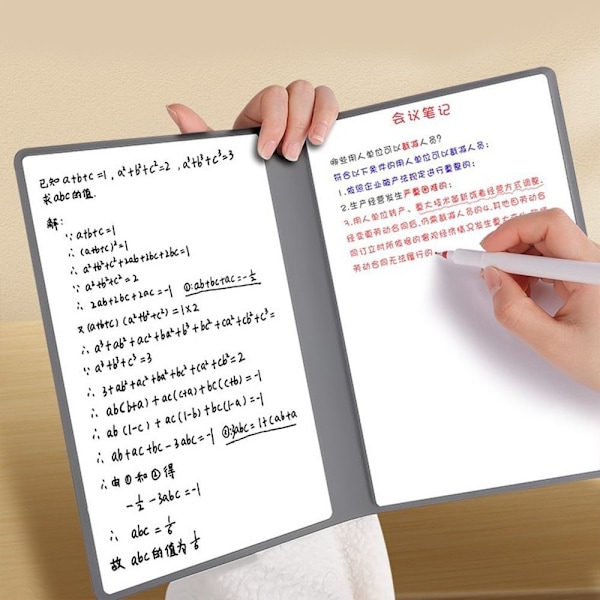 已知 a+b+c=1, a²+b²+c²=2, a³+b³+c³=3
求abc的值.
解:
∵ a+b+c=1
∴ (a+b+c)²=1
∴ a²+b²+c²+2ab+2bc+2ac=1
∵ a²+b²+c²=2
∴ 2ab+2bc+2ac=-1 ①:ab+bc+ac=-½
×(a+b+c)(a²+b²+c²)=1×2
∴ a³+ab²+ac²+ba²+b³+bc²+ca²+cb²+c³=
∵ a³+b³+c³=3
∴ 3+ab²+ac²+ba²+bc²+ca²+cb²=2
∴ ab(b+a)+ac(c+a)+bc(c+b)=-1
∴ ab(1-c)+ac(1-b)+bc(1-a)=-1
∴ ab+ac+bc-3abc=-1 ②:3abc=1+(ab+a
∴ 由①和②得
-½-3abc=-1
∴ abc=1/6
故 abc的值为 1/6
会议笔记
哪些用人单位可以裁减人员?
符合以下条件的用人单位可以裁减人员:
1.依照企业破产法规定进行重整的;
2.生产经营发生严重困难的;
3.用人单位转产、重大技术革新或者经营方式调整,
经变更劳动合同后,仍需裁减人员的4.其他因劳动合
同订立时所依据的客观经济情况发生重大
劳动合同无法履行的